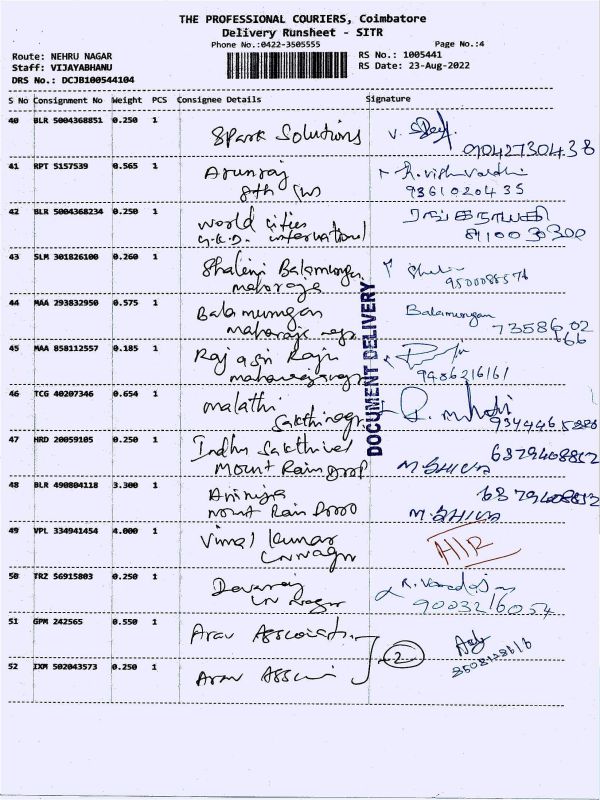 THE PROFESSIONAL COURIERS, Coimbatore
Delivery Runsheet - SITR
Phone No.:0422-3505555 Page No.:4
Route: NEHRU NAGAR RS No.: 1005441
Staff: VIJAYABHANU RS Date: 23-Aug-2022
DRS No.: DCJB100544104
S No Consignment No Weight PCS Consignee Details Signature
40 BLR 5004368851 0.250 1
Spark Solutions
41 RPT 5157539 0.565 1
Arunraj
8th
9361020435
42 BLR 5004368234 0.250 1
World Cities
international
43 SLM 301826100 0.260 1
Shalini Balamurugan
maharaja
DOCUMENT DELIVERY
44 MAA 293832950 0.575 1
Balamurugan Balamurugan
maharaja 73586 02
66
45 MAA 858112557 0.185 1
Raj
9486216161
46 TCG 40207346 0.654 1
malathi
47 HRD 20059105 0.250 1
Indhu Sakthivel 6379408812
Mount Rain Drop M. SHIVA
48 BLR 490804118 3.300 1
6379408812
Mount Rain M. SHIVA
49 VPL 334941454 4.000 1
Vimal Kumar
50 TRZ 56915803 0.250 1
Devaraj
9003216054
51 GPM 242565 0.550 1
Arav
2
52 IXM 502043573 0.250 1
Arav